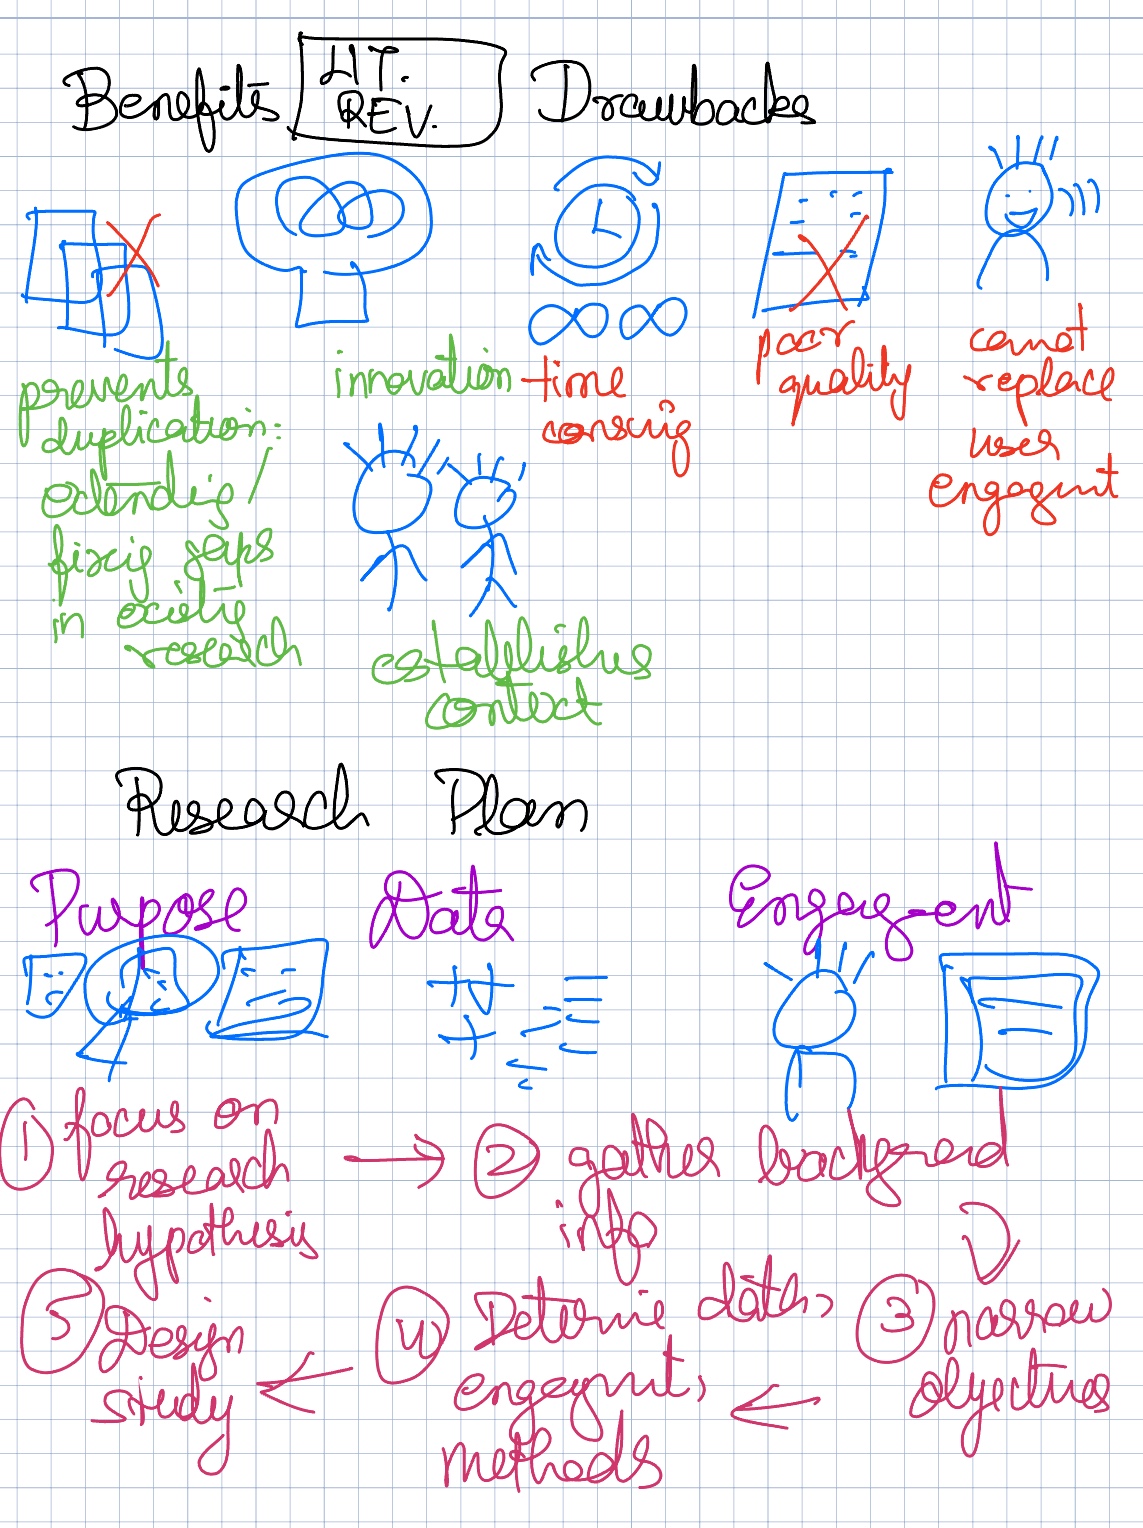 Benefits LIT. REV. Drawbacks
prevents
duplication:
extending/
fixing gaps
in existing
research
innovation
establishes
context
time
consuig
poor
quality
cannot
replace
user
engagemnt
Research Plan
Purpose Data Engagement
① focus on
research
hypothesis
→ ② gather background
info
③ narrow
objectives
④ Determine data,
engagemnt,
methods
⑤ Design
study